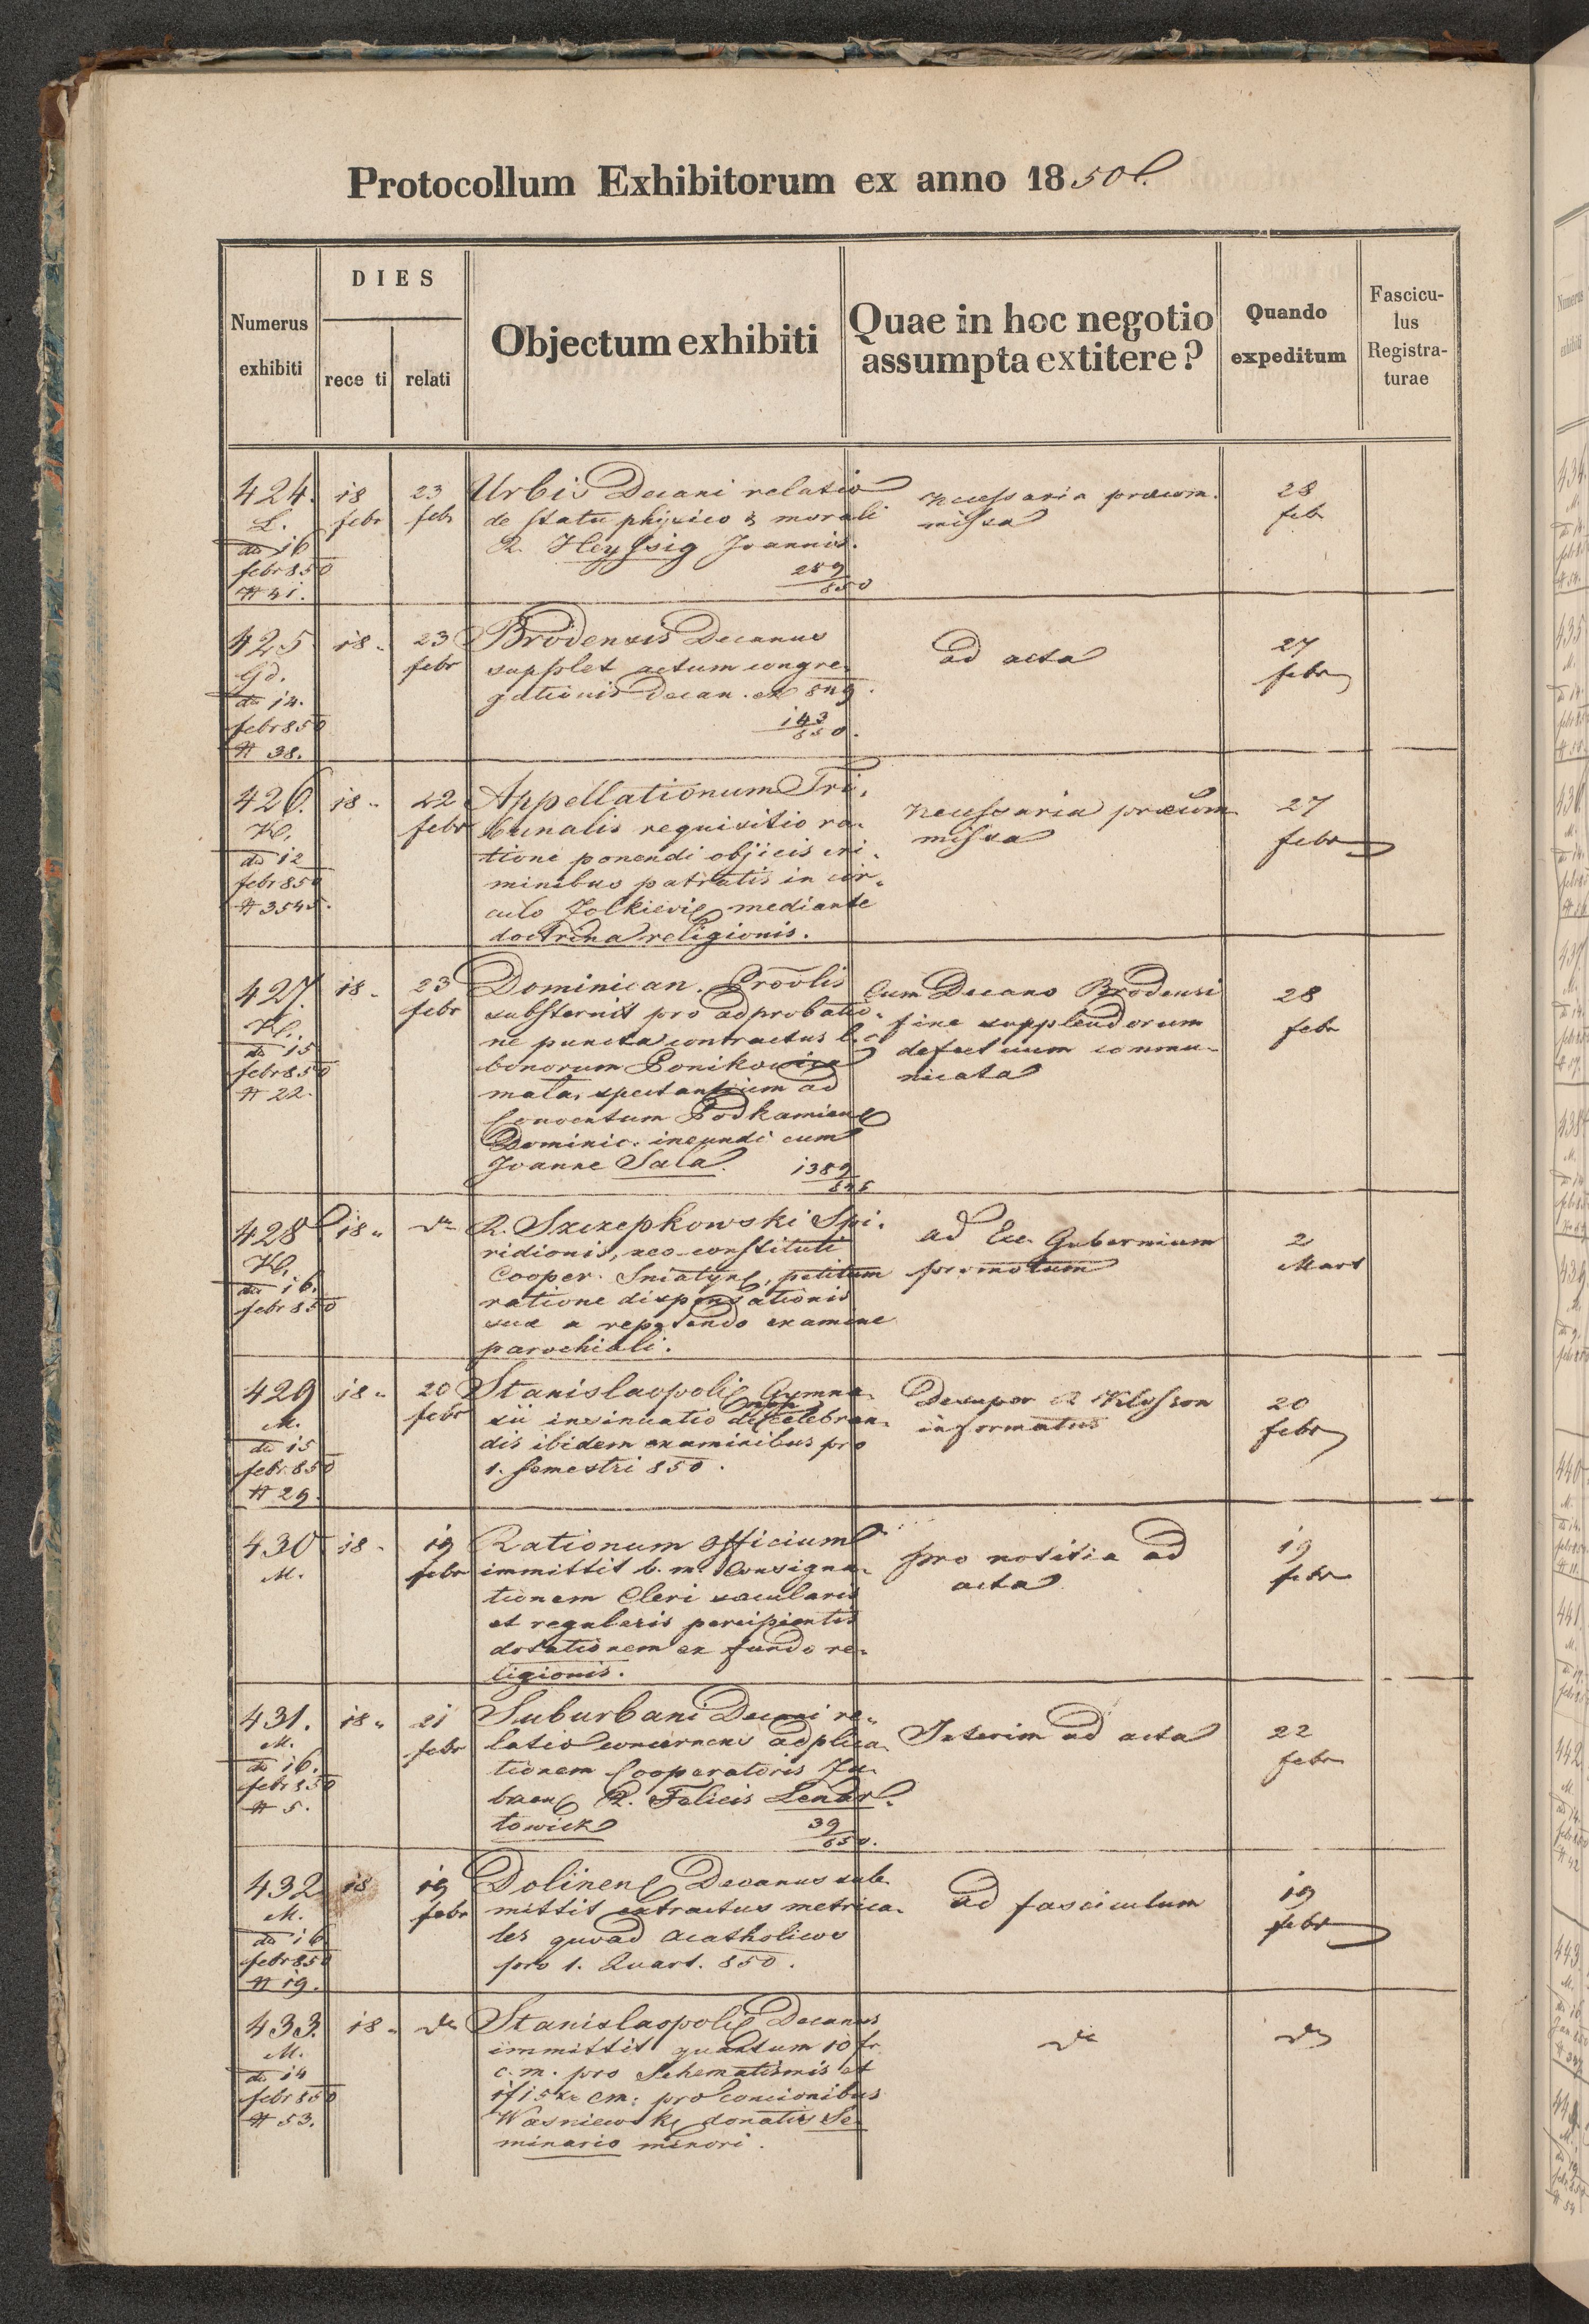 Protocollum Exhibitorum ex anno 1850
Numerus exhibiti
DIES
rece ti
relati
Objectum exhibiti
Quae in hoc negotio assumpta extitere?
Quando expeditum
Fascicu-
lus
Registra-
turae
424. 18 febr 23 febr
L.
dto 16
febr 850
# 41.
Urbis Decani relatio
de statu phisico & morali
R. Heyssig Joannis.
289
850
necessaria praecom.
missa
28
feb
425 18. 23 febr
Gd.
dto 14.
febr 850
# 38.
Brodensis Decanus
supplet actum congre-
gationis decan. ex 849.
143
850.
ad acta
27
febr
426. 18. 22 febr
Kl.
dto 12
febr 850
# 3545.
Appellationum Tri-
bunalis requisitio ra-
tione ponendi objicis cri-
minibus patratis in cir-
culo Zolkievi mediante
doctrina religionis.
necessaria praecom
missa
27
febr
427. 18. 23 febr
Kl.
dto 15
febr 850
# 22.
Dominican. Provlis
substernit pro adprobatio-
ne puncta contractus
bonorum Ponikowica
mala, spectantium ad
Conventum Podkamien
Dominic. ineundi cum
Joanne Sala.
1389
848
Cum Decano Brodensi
fine supplendorum
defectuum commu-
nicata
28
febr
428 18. dto
Kl.
dto 16.
febr 850
R. Szczepkowski Spi-
ridionis, neo-constituti
Cooper. Sniatyn, petitum
ratione dispensationis
suae a repetendo examine
parochiali.
ad Exc. Gubernium
promotum
2
Mart
429 18. 20 febr
M.
dto 15
febr. 850
# 29.
Stanislaopoli Gymna-
non
sii insinuatio de celebran-
dis ibidem examinibus pro
1. semestri 850.
Desuper R Klosson
informatus
20
febr
430 18. 19 febr
M.
Rationum officium
immittit b. m. Consigna-
tionem Cleri saecularis
et regularis percipientis
dotationem ex fundo re-
ligionis.
pro notitia ad
acta
19
febr
431. 18. 21 febr
M.
dto 16.
febr 850
# 5.
Suburbani Decani re-
latio concernens adplica-
tionem Cooperatoris Zu-
R. Felicis Lenar-
towicz
39
850.
Interim ad acta
22
febr
432 18 19 febr
M.
dto 16
febr 850
# 19.
Dolinen Decanus sub-
mittit extractus metrica-
les quoad acatholicos
pro 1. Quart. 850.
ad fasciculum
19
febr
433. 18. dto
M.
dto 14
febr 850
# 53.
Stanislaopoli Decanus
immittit quantum 10 fr
c. m. pro Schematismis et
1f 15 xr cm: pro concionibus
Wasniewski donatis Se-
minario minori.
dto
dto